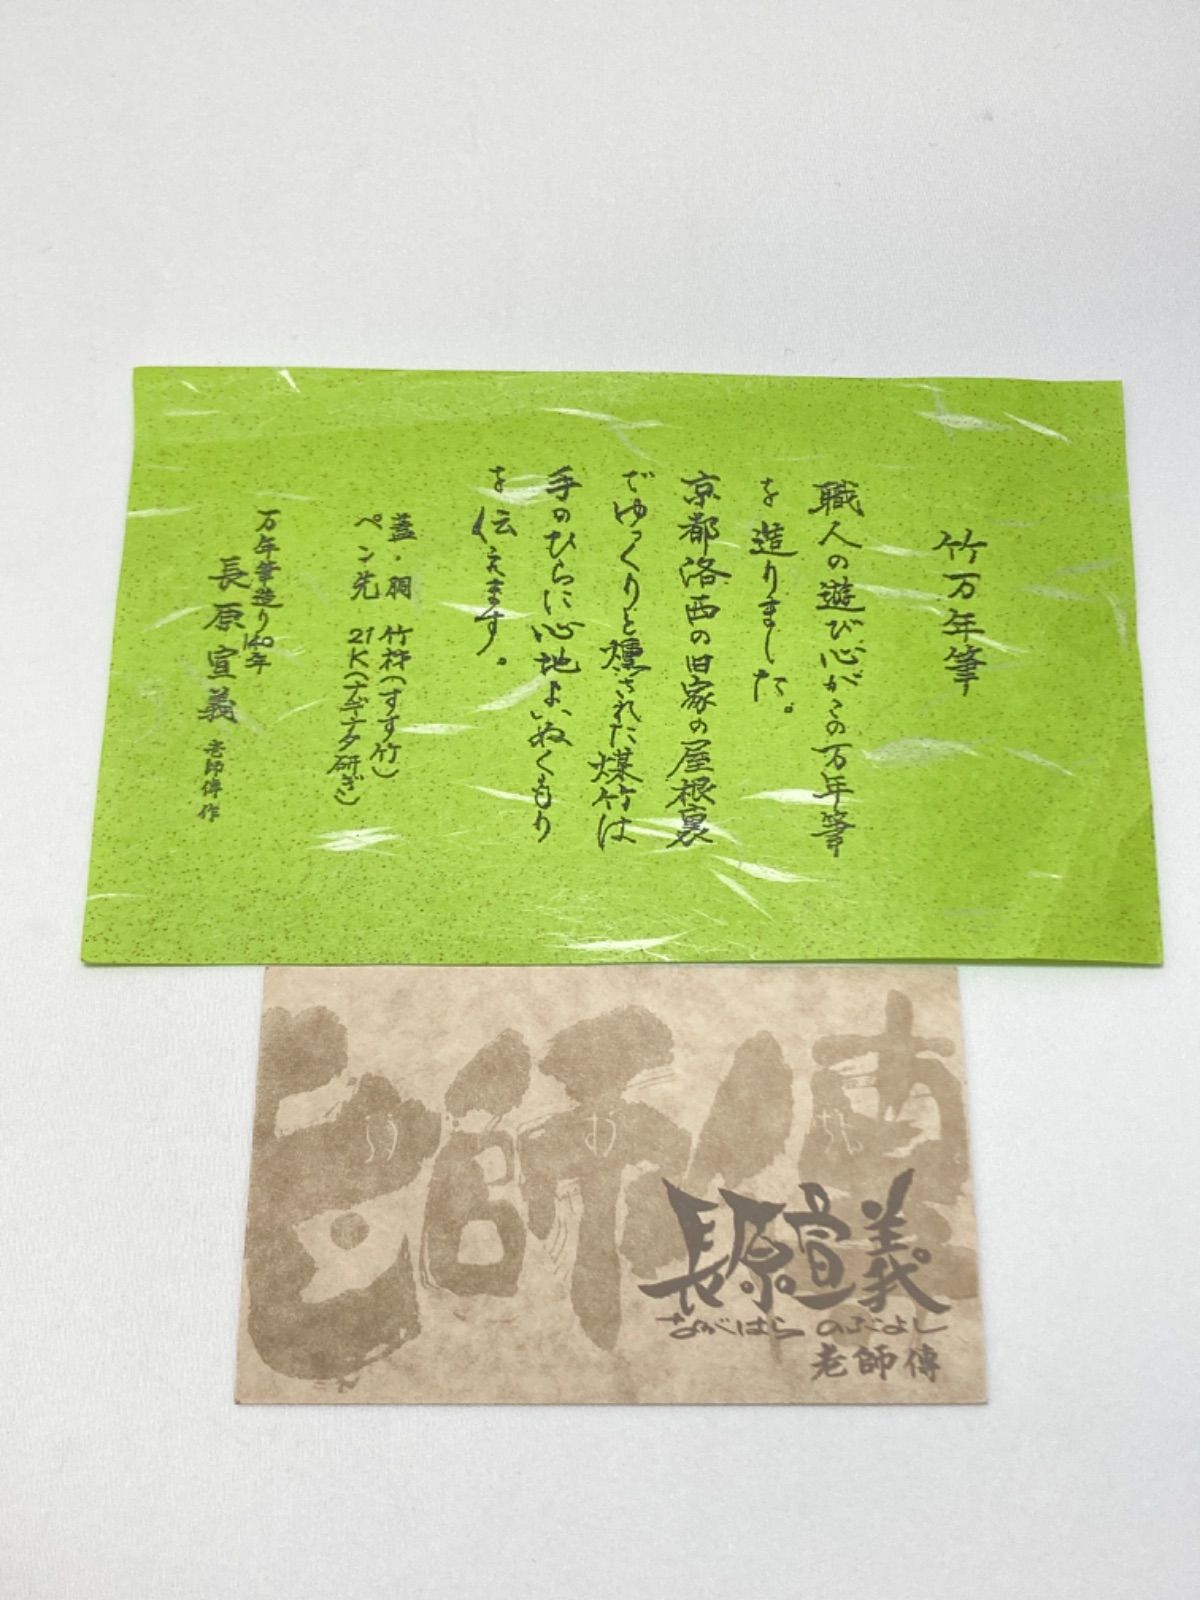 竹万年筆
職人の遊び心がこの万年筆
を造りました。
京都洛西の旧家の屋根裏
でゆっくりと燻された煤竹は
手のひらに心地よいぬくもり
を伝えます。
蓋・胴　竹材(すす竹)
ペン先　21K(ナギナタ研ぎ)
万年筆造り40年
長原宣義 老師傳作
老師傳
長原宣義
ながはら のぶよし
老師傳